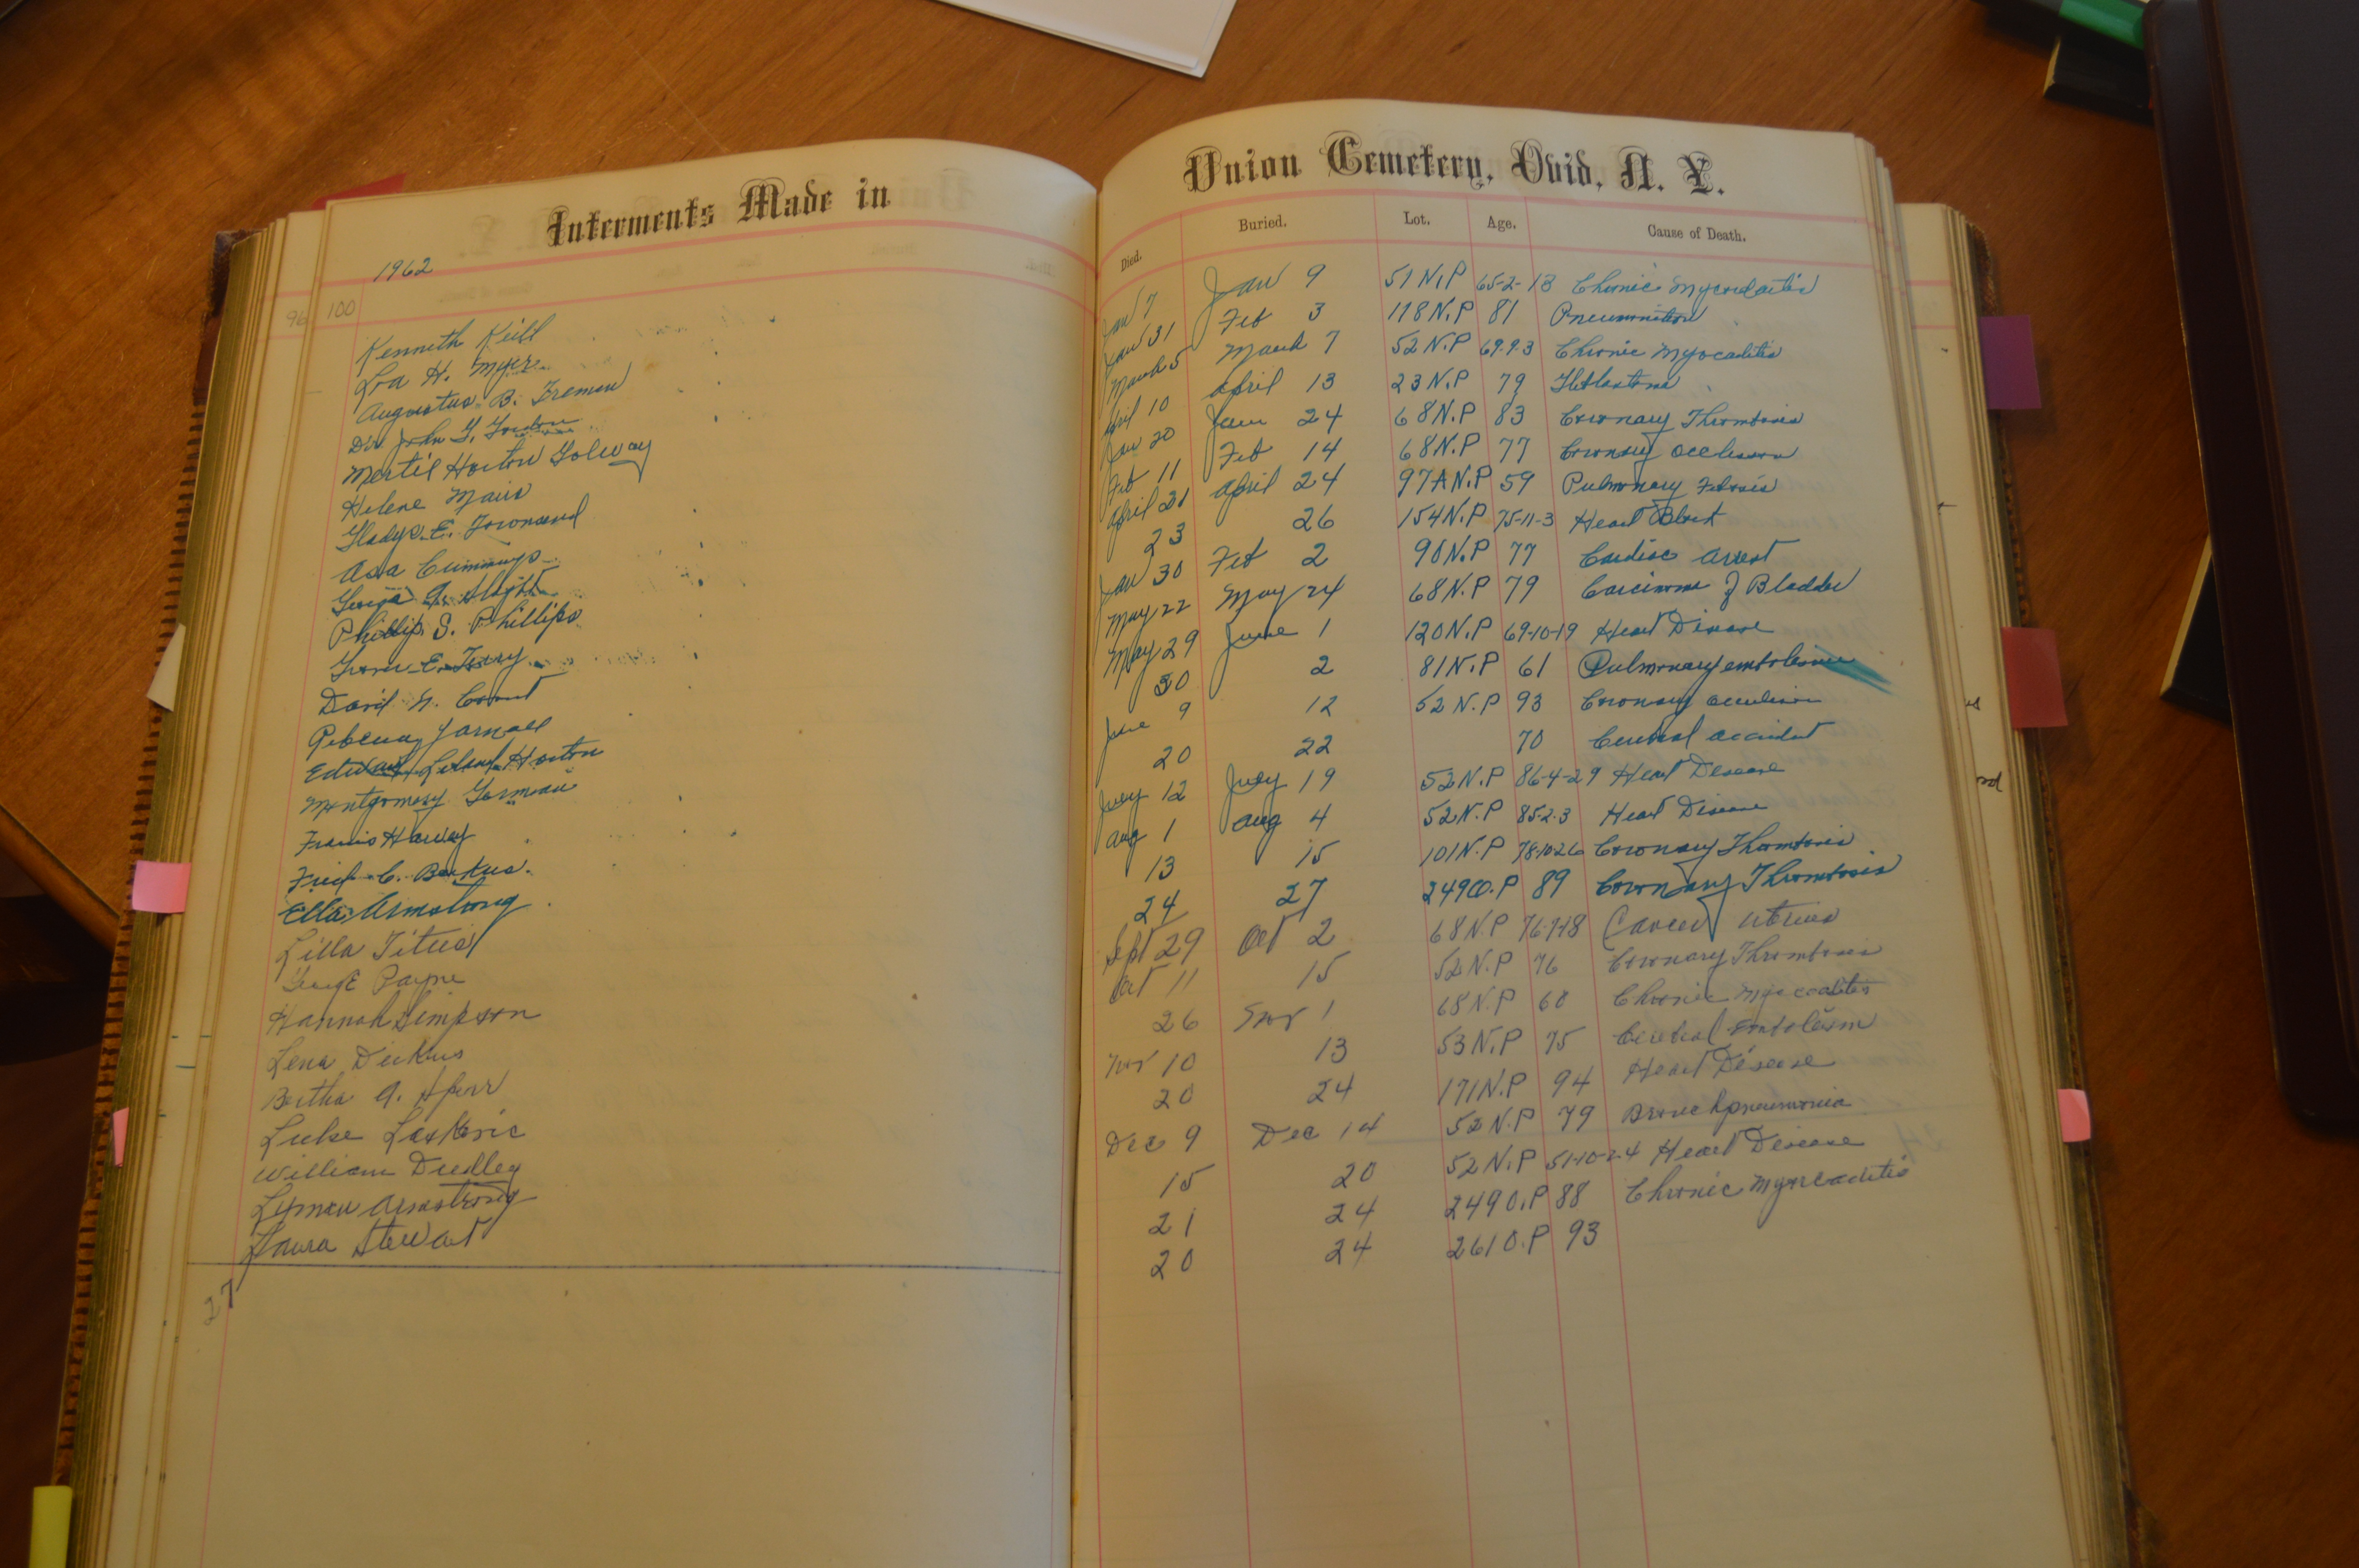 Interments Made in
Union Cemetery, Ovid, N. Y.
Died. Buried. Lot. Age. Cause of Death.
1962
96 100
Kenneth Keill Jan 7 Jan 9 51 N.P 65-2-13 Chronic
H. Myer Jan 31 Feb 3 118 N.P 81
Augustus B. March 5 March 7 52 N.P 69-9-3 Chronic
Dr. John G. Gordon April 10 April 13 23 N.P 79
Horton Jan 20 Jan 24 68 N.P 83 Coronary Thrombosis
Helene Feb 11 Feb 14 68 N.P 77 Coronary
Gladys E. Townsend April 21 April 24 97A N.P 59 Pulmonary
Asa Cummings 23 26 154 N.P 75-11-3 Heart Block
Jan 30 Feb 2 90 N.P 77 Cardiac Arrest
Phillip S. Phillips May 22 May 24 68 N.P 79 Bladder
E. May 29 June 1 120 N.P 69-10-19 Heart Disease
David 30 2 81 N.P 61 Pulmonary
Yarnall June 9 12 52 N.P 93 Coronary
Edward Leland Horton 20 22 70 accident
Montgomery July 12 July 19 52 N.P 86-4-29 Heart Disease
Francis Harvey Aug 1 Aug 4 52 N.P 85-2-3 Heart Disease
Fred C. Backus. 13 15 101 N.P 78-10-26 Coronary Thrombosis
Ella Armstrong 24 27 249 O.P 89 Coronary Thrombosis
Lilla Titus Sept 29 Oct 2 68 N.P Cancer Uterus
George Payne Oct 11 15 52 N.P 76 Coronary Thrombosis
Hannah Simpson 26 Nov 1 68 N.P 60 Chronic
Lena Nov 10 13 53 N.P 75
Bertha A. 20 24 171 N.P 94 Heart Disease
Luke Dec 9 Dec 14 52 N.P 79 Bronchpneumonia
William Dudley 15 20 52 N.P 51-10-24 Heart Disease
Lyman Armstrong 21 24 249 O.P 88 Chronic
Laura Stewart 20 24 261 O.P 93
27